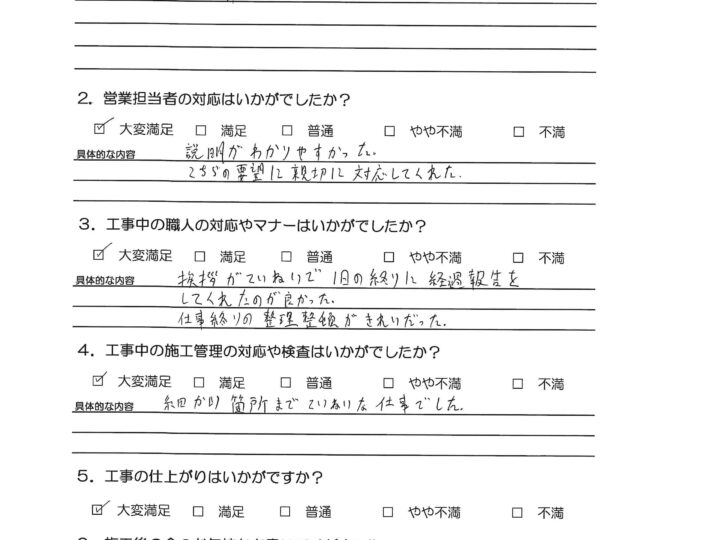 2. 営業担当者の対応はいかがでしたか？
☑ 大変満足 □ 満足 □ 普通 □ やや不満 □ 不満
具体的な内容 説明がわかりやすかった.
こちらの要望に親切に対応してくれた.
3. 工事中の職人の対応やマナーはいかがでしたか？
☑ 大変満足 □ 満足 □ 普通 □ やや不満 □ 不満
具体的な内容 挨拶がていねいで 1日の終りに 経過報告を
してくれたのが良かった.
仕事終りの整理整頓がきれいだった.
4. 工事中の施工管理の対応や検査はいかがでしたか？
☑ 大変満足 □ 満足 □ 普通 □ やや不満 □ 不満
具体的な内容 細かい箇所まで ていねいな 仕事でした.
5. 工事の仕上がりはいかがですか？
☑ 大変満足 □ 満足 □ 普通 □ やや不満 □ 不満